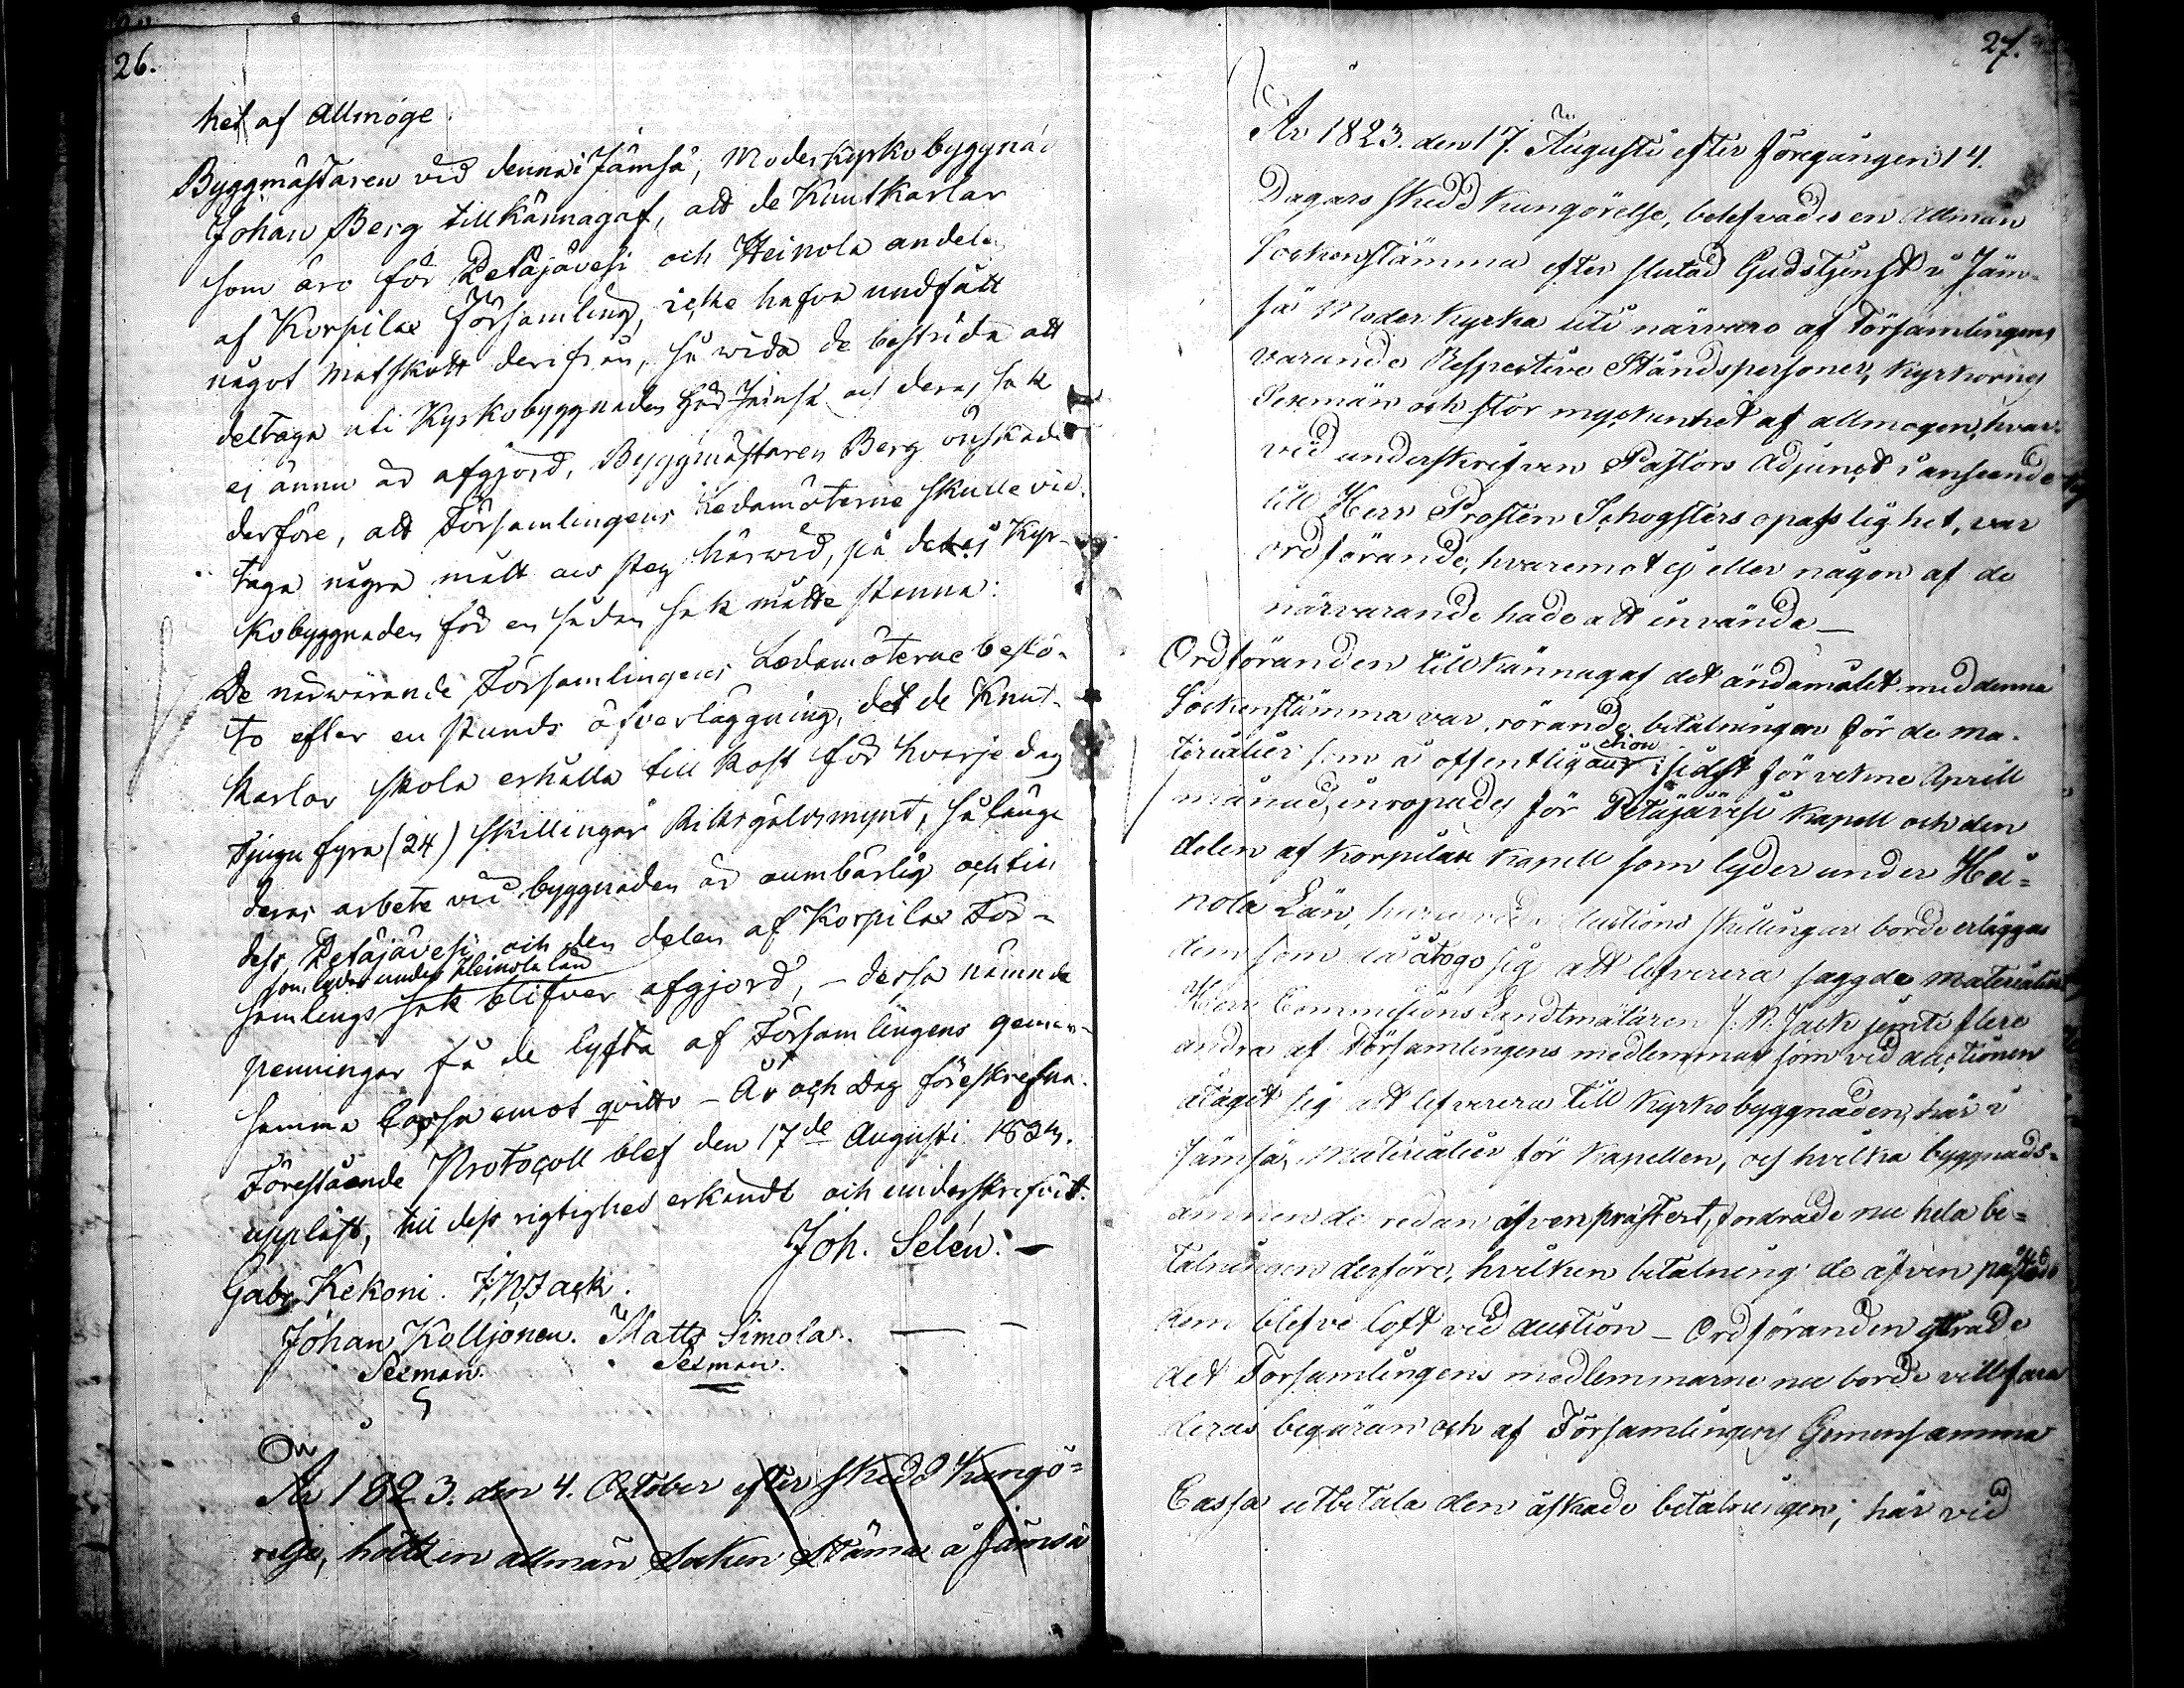 26.
het af Allmoge.
Byggmästaren vid denna i Jämsä, Moderkyrko byggnad
Johan Berg tillkännagaf, att de Knutkarlar
som äro för Petäjävesi och Heinola andelen
af Korpilax Församling, icke hafva undfått
något matskott derifrån, så wida de bestrida att
deltaga uti Kyrkobyggnaden här Jämsä och deras sak
ej ännu är afgjord, Byggmästaren Berg önskade
derföre, att Församlingens Ledamöterne skulle vid-
taga några mått och steg härwid, på det ej Kyr-
kobyggnaden för en sådan sak måtte stanna:
De närwarande Församlingens Ledamöterne beslö-
to efter en stunds öfverläggning, det de Knut-
karlar skola erhålla till kost för hvarje dag
Tjugu fyra (24) skillingar Riksgäldsmynt, så länge
deras arbete vid byggnaden är oumbärlig och till
dess Petäjävesi och den delen af Korpilax För-
som lyder under Heinola län
samlings sak blifver afgjord, – dessa nämnde
penningar få de lyfta af Församlingens gemen-
samma Cassa emot qvitto – År och Dag föreskrefna.
Förestående Protocoll blef den 17de Augusti 1823.
uppläst, till dess rigtighet erkändt och underskrifvit.
Joh. Selén. –
Gabr. Kekoni. J. N. Jack.
Johan Kolljonen. Matts Simola.
Sexman. Sexman.
År 1823. den 4. October efter skedd Kungö=
relse, hölts en allmän Socken Stäma i Jämsä
27.
År 1823. den 17. Augusti efter föregången 14.
Dagars skedd kungörelse, blefvades en Allmän
Sockenstämma efter slutad Gudstjenst i Jäm=
sä Moderkyrka uti närvaro af Församlingens
varande Respective Ståndspersoner, Kyrkovärd
Sexmän och stor myckenhet af allmogen, hvar-
vid underskrifven Pastors Adjunct i anseende
till Herr Prosten Schogsters opasslighet, var
ordförande, hvaremot ej eller någon af de
närvarande hade att invända –
Ordföranden tillkännagaf det ändamålet med denna
Sockenstämma var, rörande betalningen för de ma-
ction
terialier som å offentlig au sidst förvekne Aprill
månad, inropades för Petäjävesi kapell och den
delen af Korpilax Kapell som lyder under Hei=
nola Län, Auctions skillingar borde erläggas
dem som då åtogo sig att lefverera saggde materialier
Herr Commisions Landtmätaren J. N. Jack jemte flere
andra af Församlingens medlemmar som vid auctionen
åtagit sig att lefverera till Kyrkobyggnaden, här i
Jämsä, Materialier för Kapellen, och hvilka byggnads=
ämnen de redan äfven prästert, fordrade nu hela be=
talningen derföre, hvilken betalning de äfven påstod
dem blefve loft vid auction – Ordföranden yttrade
det Församlingens medlemmarne nu borde villfara
deras begäran och af Församlingens Gemensamma
Cassa utbetala den äskade betalningen; här vid